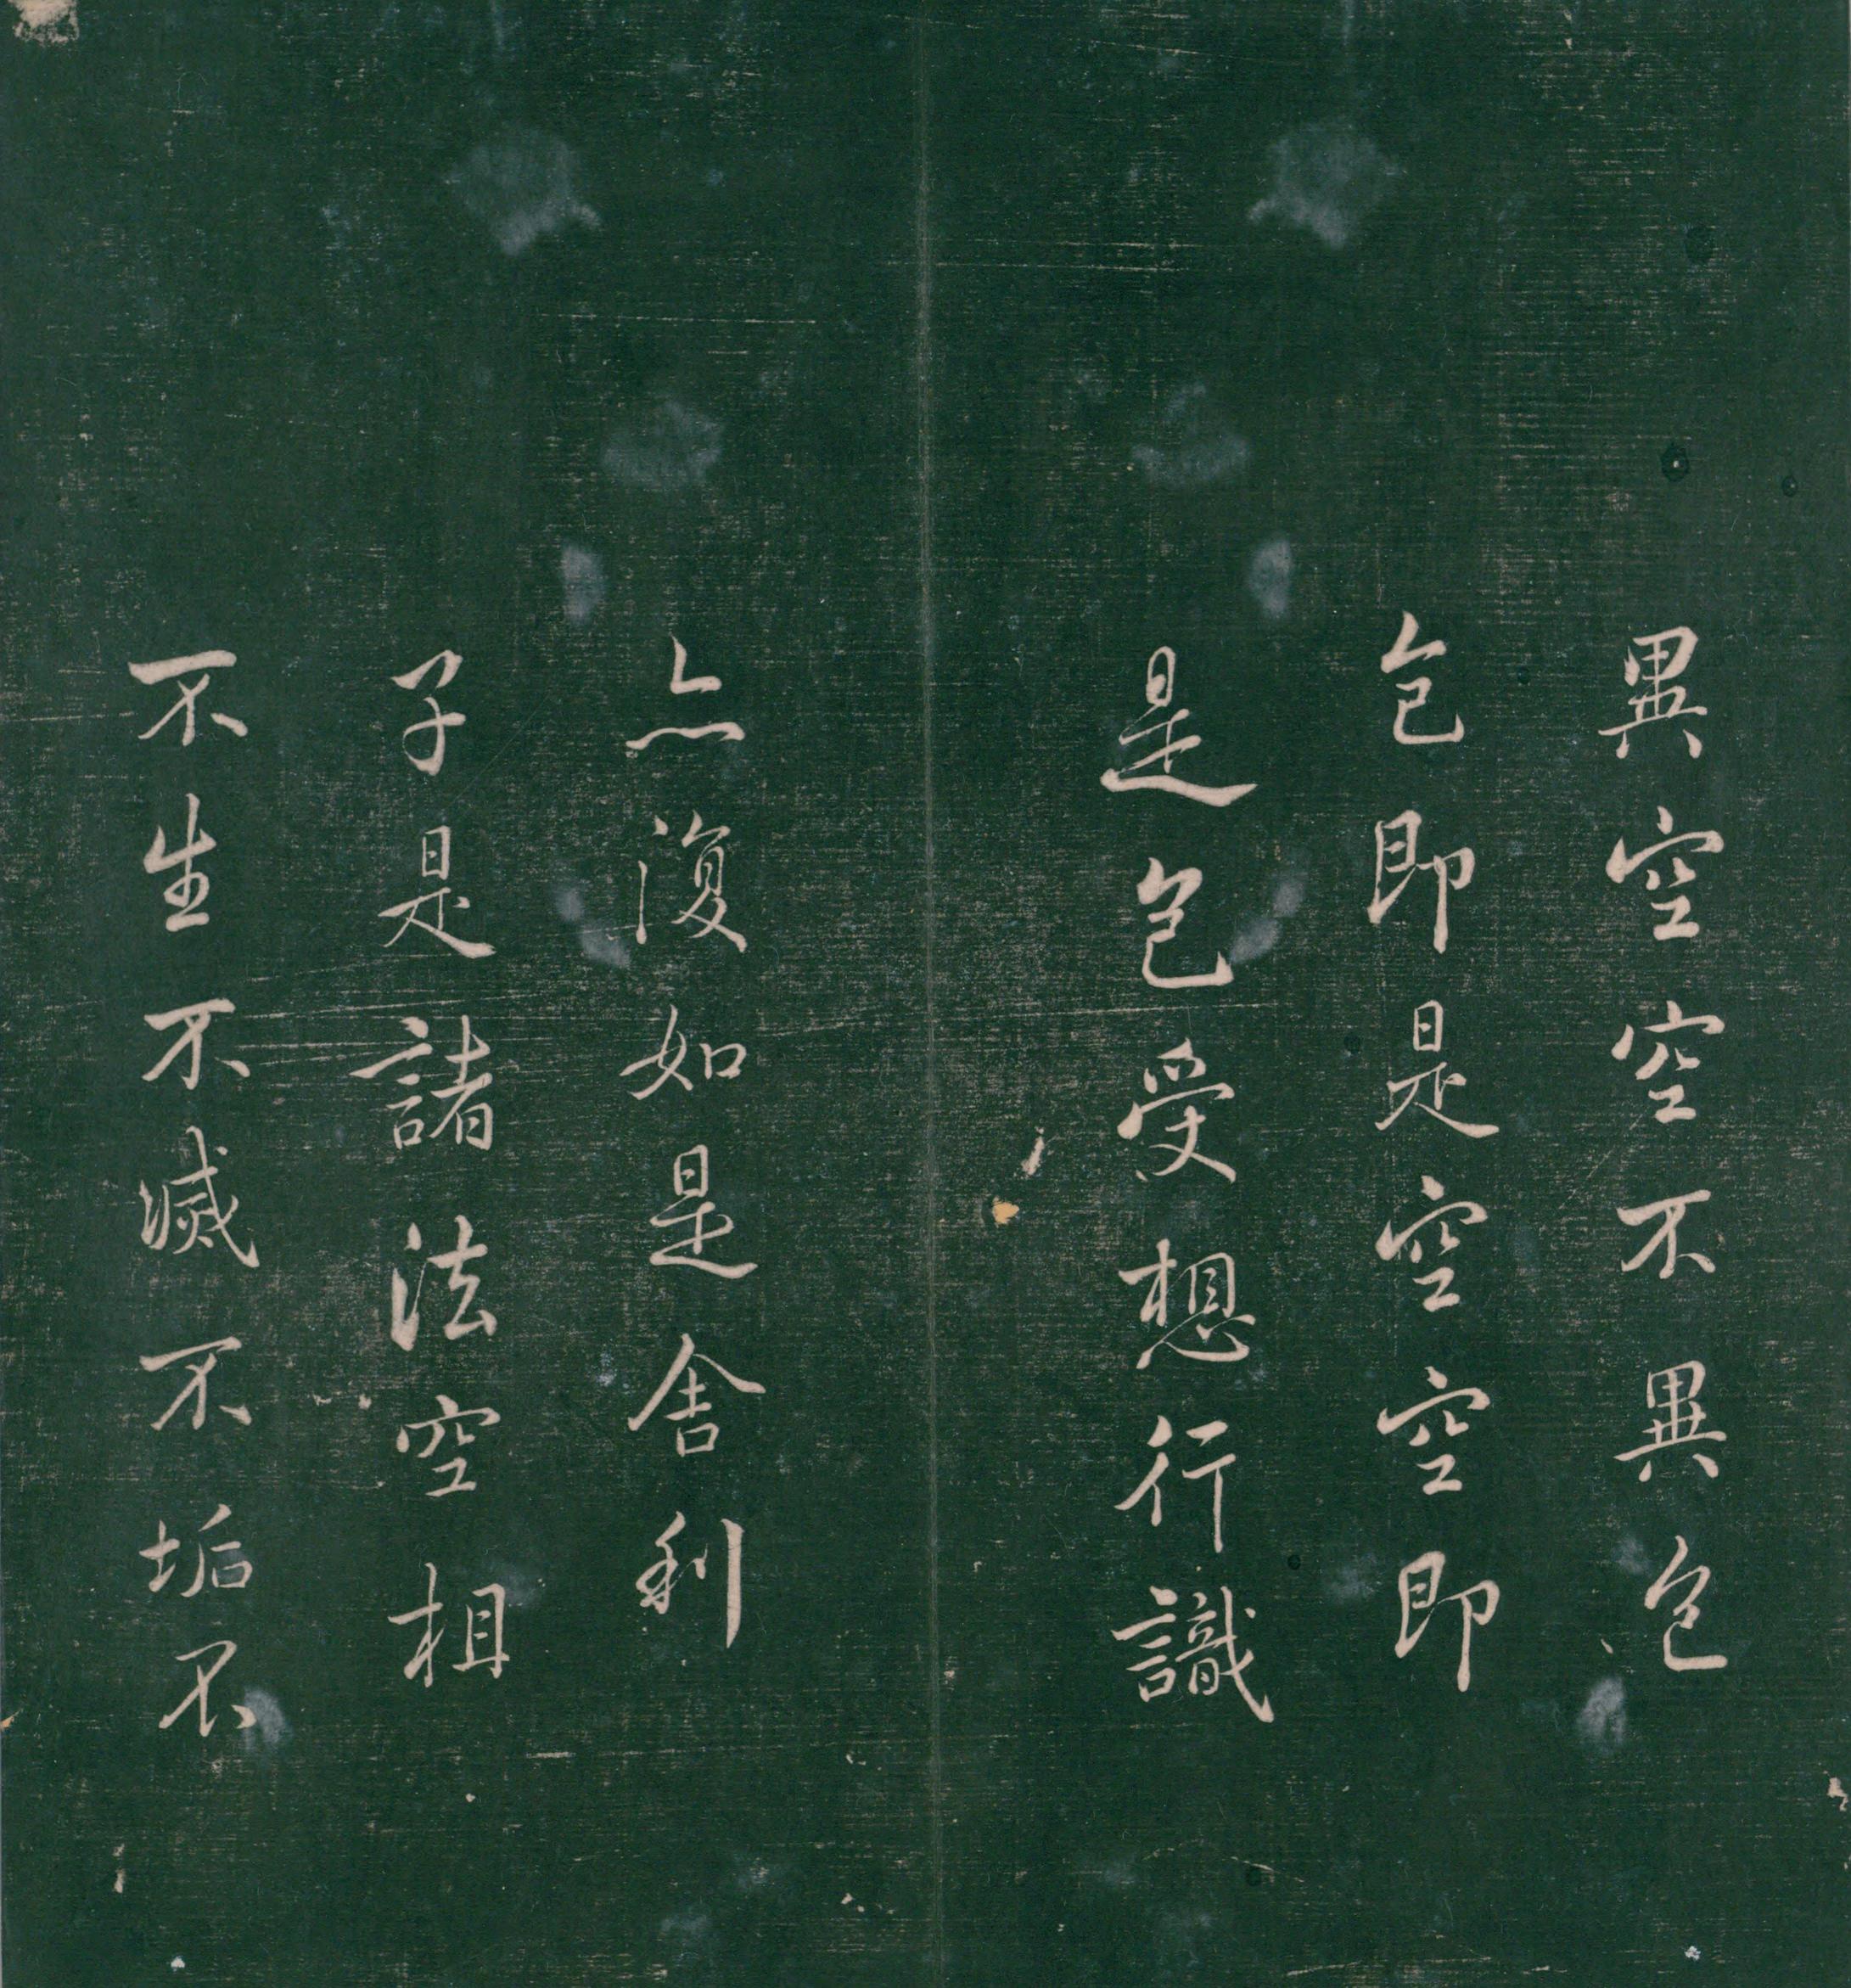 異空空不異色
色即是空空即
是色受想行識
亦復如是舍利
子是諸法空相
不生不滅不垢不